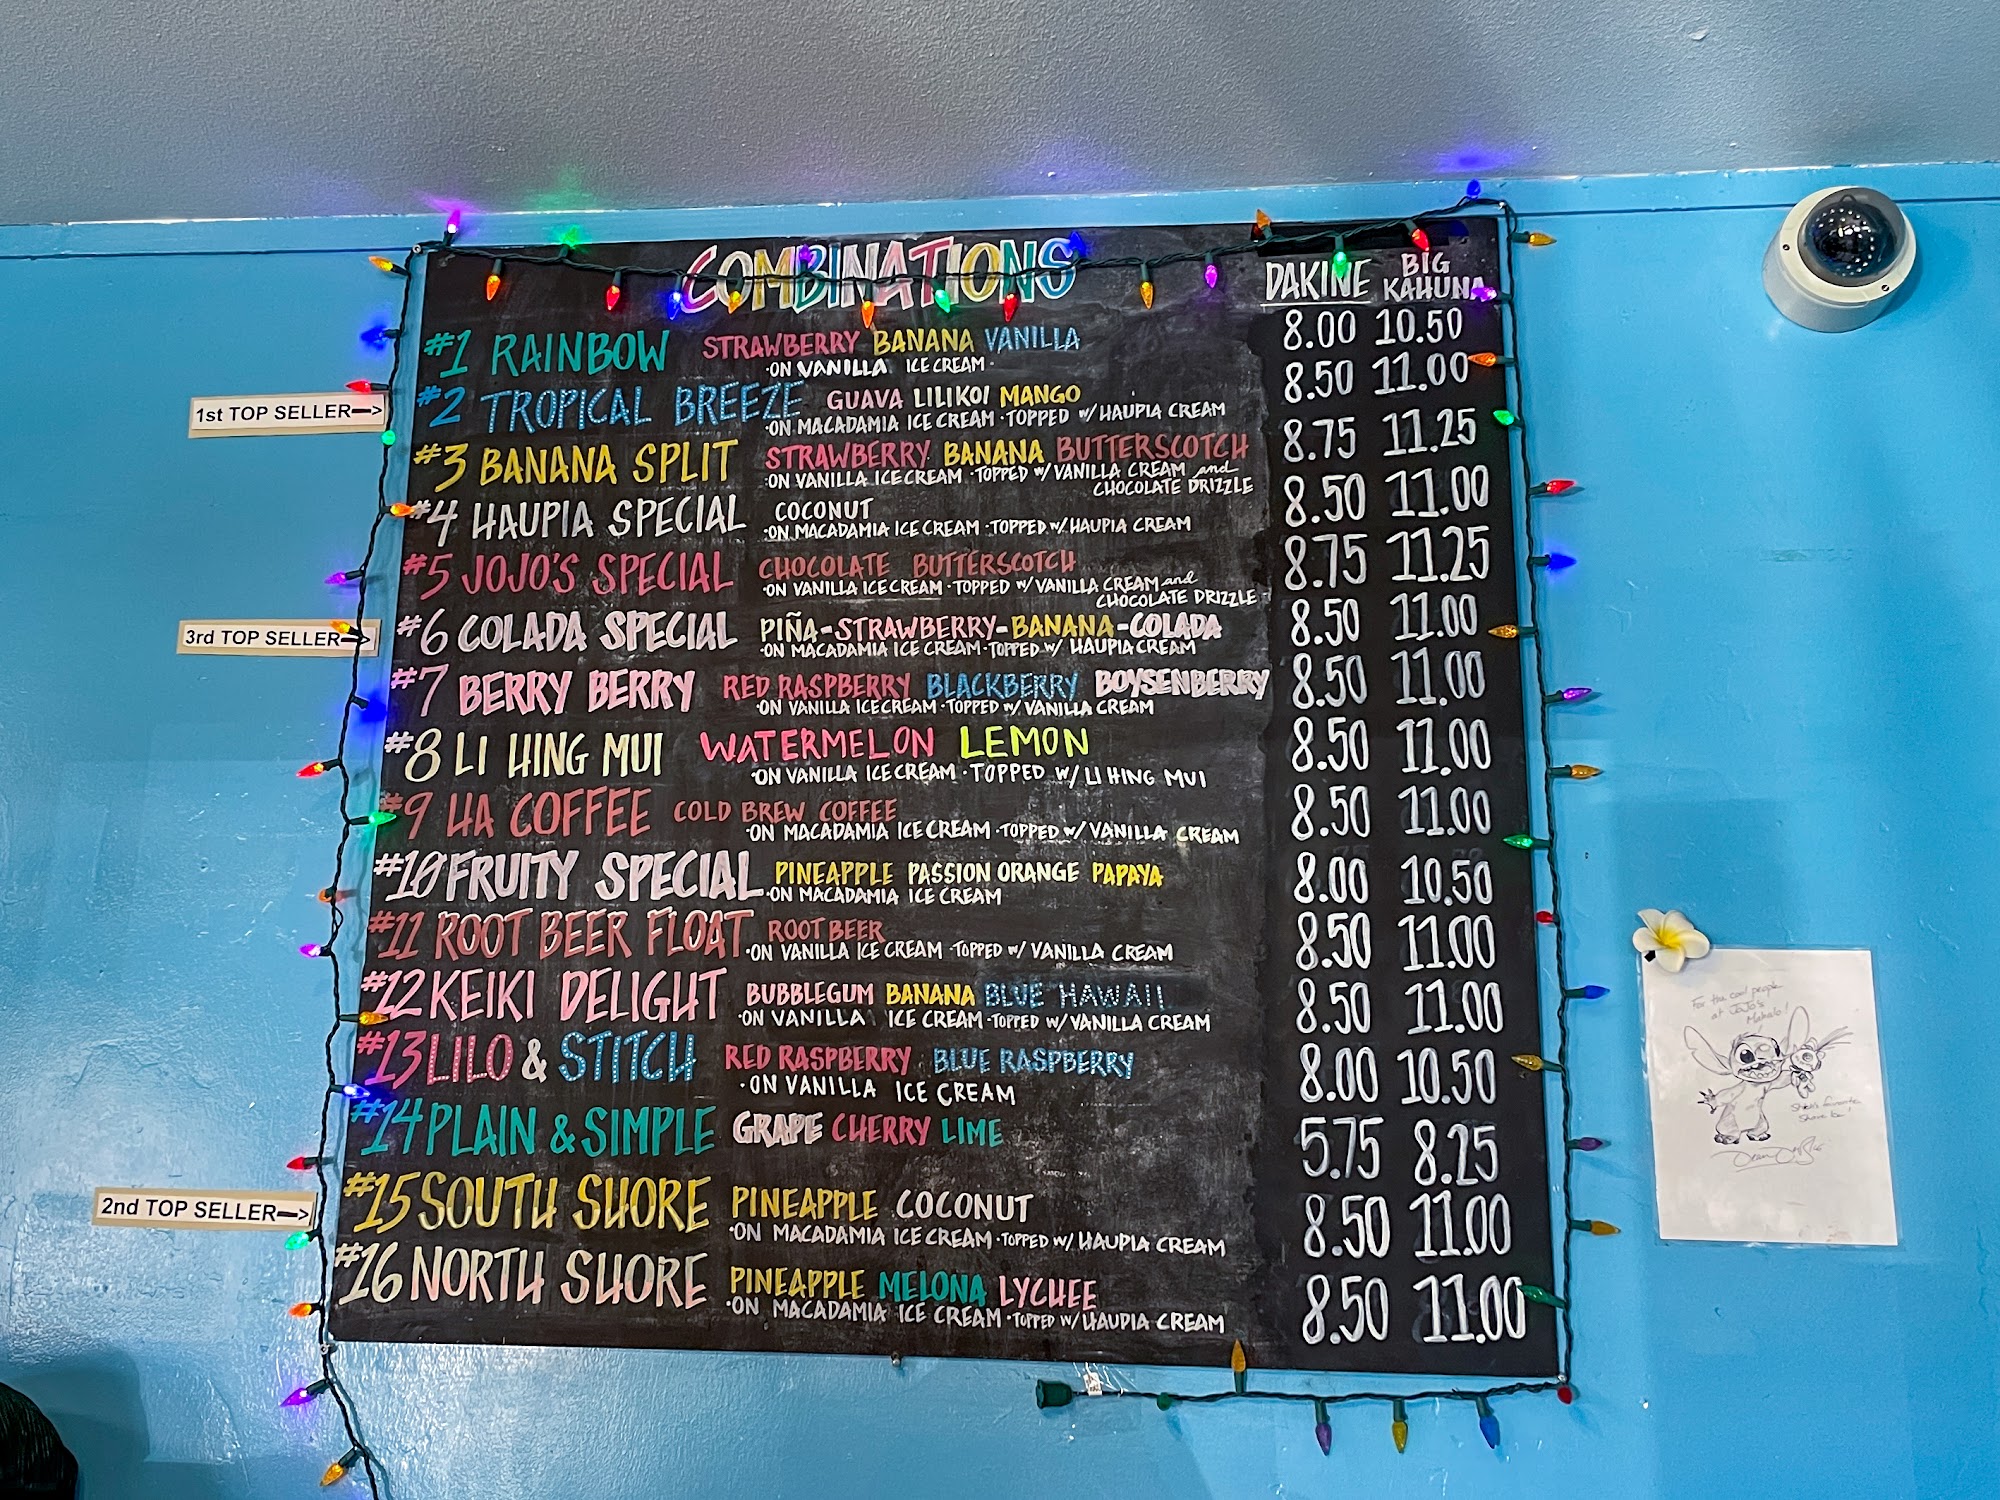 COMBINATIONS
DAKINE BIG KAHUNA
#1 RAINBOW STRAWBERRY BANANA VANILLA 8.00 10.50
·ON VANILLA ICE CREAM·
1st TOP SELLER—>
#2 TROPICAL BREEZE GUAVA LILIKOI MANGO 8.50 11.00
·ON MACADAMIA ICE CREAM·TOPPED W/ HAUPIA CREAM
#3 BANANA SPLIT STRAWBERRY BANANA BUTTERSCOTCH 8.75 11.25
·ON VANILLA ICE CREAM ·TOPPED W/ VANILLA CREAM and
CHOCOLATE DRIZZLE
#4 HAUPIA SPECIAL COCONUT 8.50 11.00
·ON MACADAMIA ICE CREAM ·TOPPED W/ HAUPIA CREAM
#5 JOJO'S SPECIAL CHOCOLATE BUTTERSCOTCH 8.75 11.25
·ON VANILLA ICE CREAM·TOPPED W/ VANILLA CREAM and
CHOCOLATE DRIZZLE
3rd TOP SELLER—>
#6 COLADA SPECIAL PIÑA-STRAWBERRY-BANANA-COLADA 8.50 11.00
·ON MACADAMIA ICE CREAM ·TOPPED W/ HAUPIA CREAM
#7 BERRY BERRY RED RASPBERRY BLACKBERRY BOYSENBERRY 8.50 11.00
·ON VANILLA ICE CREAM·TOPPED W/ VANILLA CREAM
#8 LI HING MUI WATERMELON LEMON 8.50 11.00
·ON VANILLA ICE CREAM ·TOPPED W/ LI HING MUI
#9 HA COFFEE COLD BREW COFFEE 8.50 11.00
·ON MACADAMIA ICE CREAM ·TOPPED W/ VANILLA CREAM
#10 FRUITY SPECIAL PINEAPPLE PASSION ORANGE PAPAYA 8.00 10.50
·ON MACADAMIA ICE CREAM
#11 ROOT BEER FLOAT ROOT BEER 8.50 11.00
·ON VANILLA ICE CREAM ·TOPPED W/ VANILLA CREAM
#12 KEIKI DELIGHT BUBBLEGUM BANANA BLUE HAWAII 8.50 11.00
·ON VANILLA ICE CREAM ·TOPPED W/ VANILLA CREAM
#13 LILO & STITCH RED RASPBERRY BLUE RASPBERRY 8.00 10.50
·ON VANILLA ICE CREAM
#14 PLAIN & SIMPLE GRAPE CHERRY LIME 5.75 8.25
2nd TOP SELLER—>
#15 SOUTH SHORE PINEAPPLE COCONUT 8.50 11.00
·ON MACADAMIA ICE CREAM·TOPPED W/ HAUPIA CREAM
#16 NORTH SHORE PINEAPPLE MELONA LYCHEE 8.50 11.00
·ON MACADAMIA ICE CREAM ·TOPPED W/ HAUPIA CREAM
For the cool people
at JoJo's
Mahalo!
Stitch's favorite
Shave Ice!